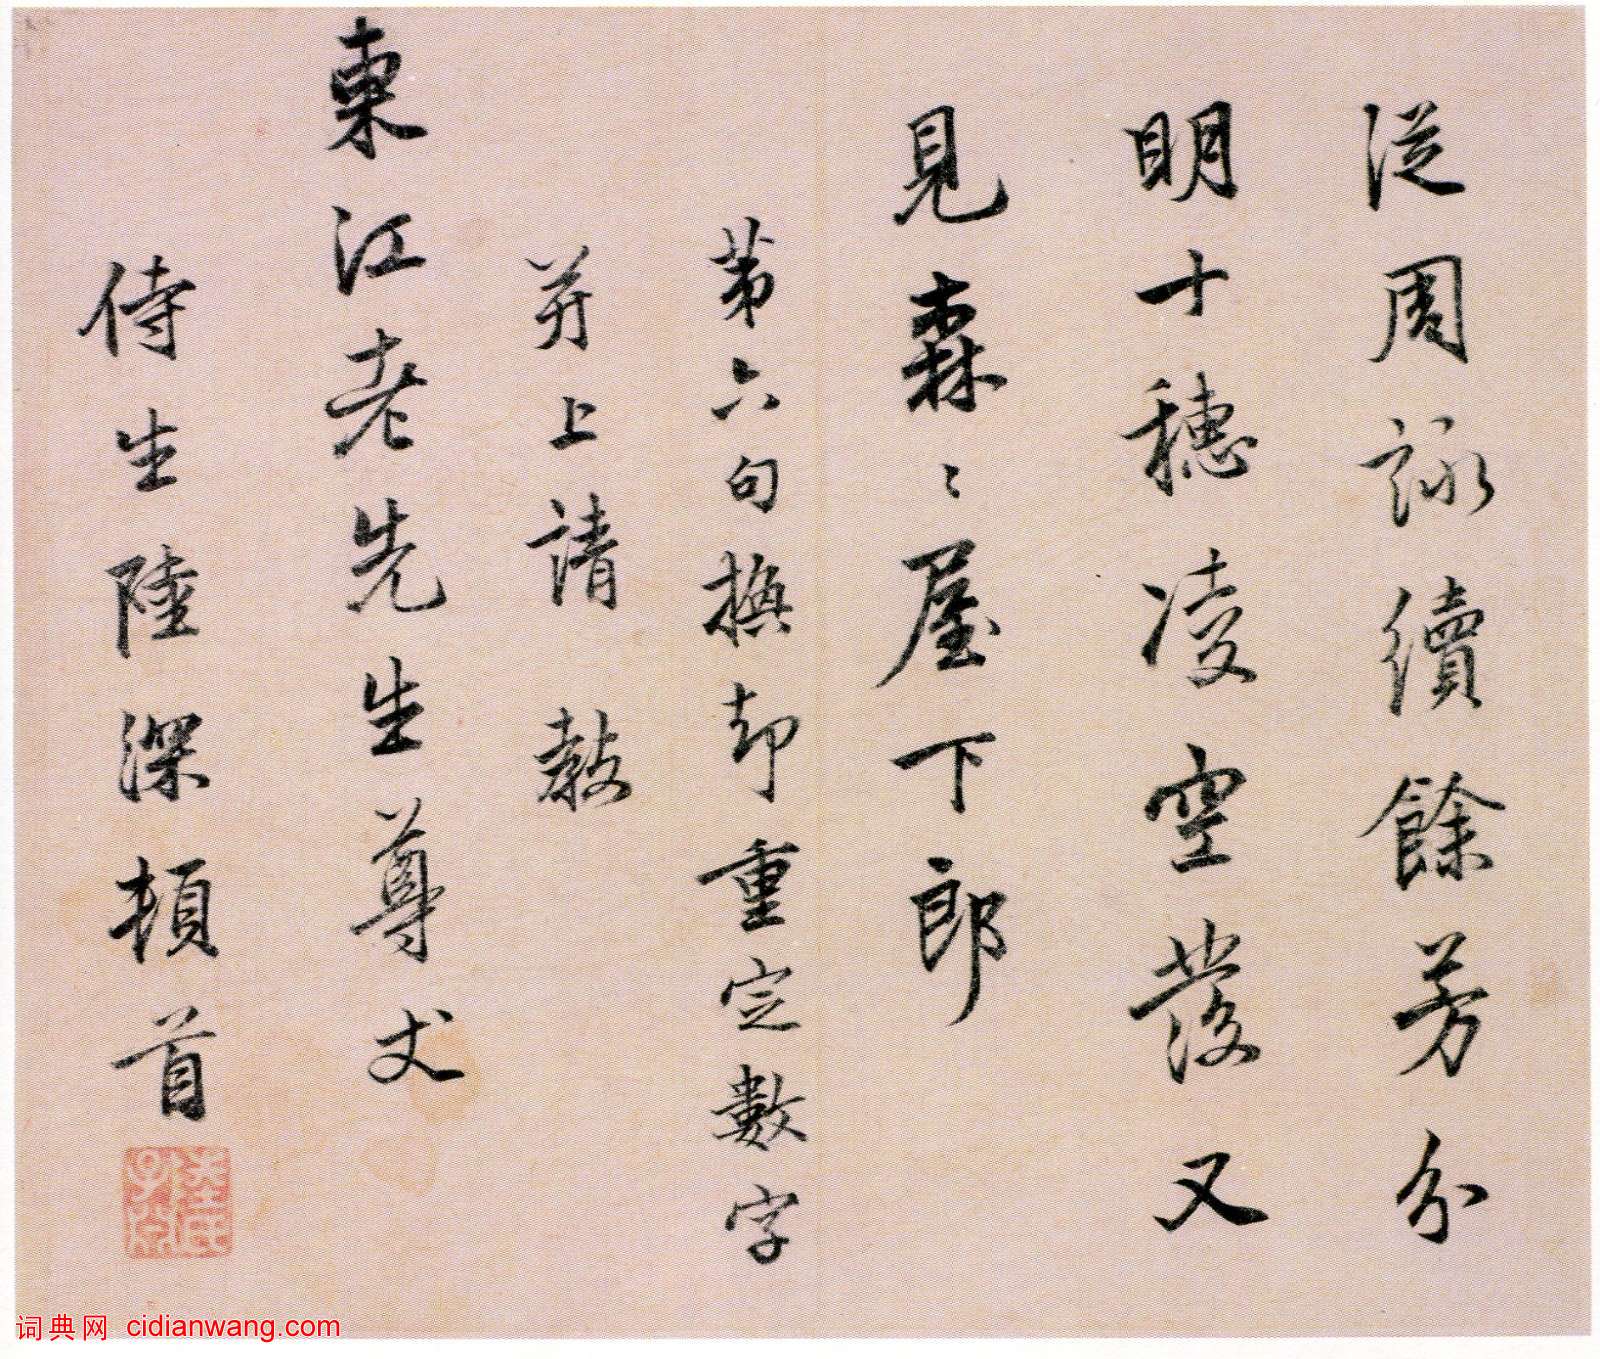 從周詠續餘芳分
明十穗凌空發又
見森〻屋下郎
第六句撫却重定數字
并上請教
東江老先生尊丈
侍生陸深頓首
陸氏子淵
词典网 cidianwang.com